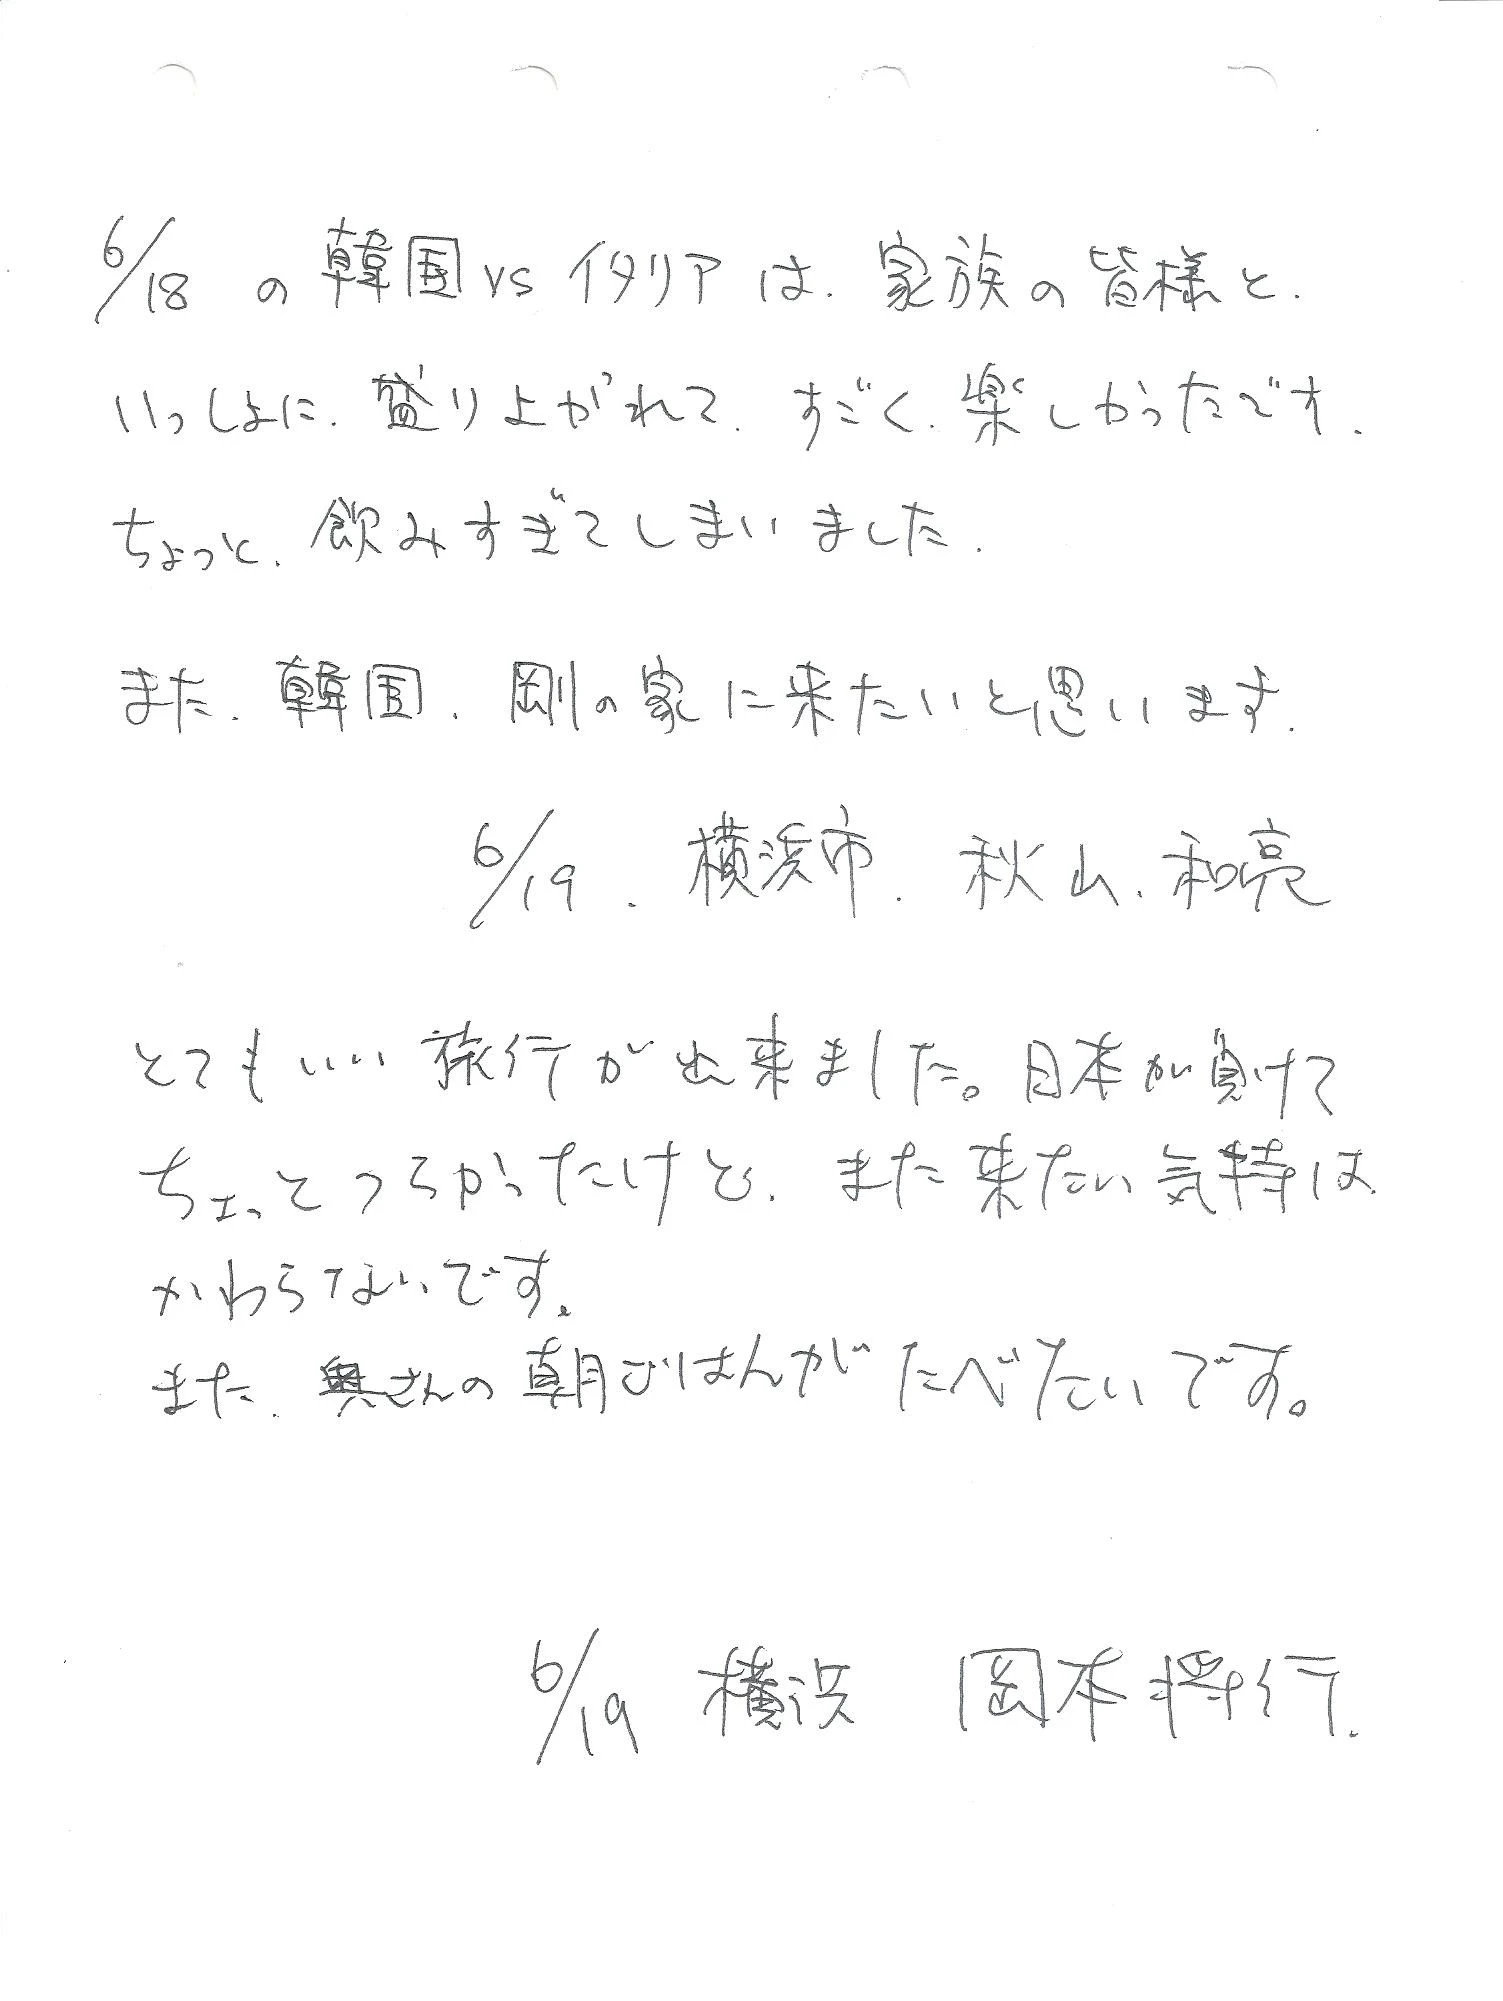 6/18 の韓国 vs イタリアは、家族の皆様と、
いっしょに、盛り上がれて、すごく、楽しかったです.
ちょっと、飲みすぎてしまいました.
また、韓国、剛の家に来たいと思います.
6/19 . 横浜市. 秋山、和亮
とてもいい旅行が出来ました。日本が負けて
ちょっとつらかったけど、また来たい気持は
かわらないです.
また、奥さんの朝ごはんがたべたいです。
6/19 横浜 岡本将行.